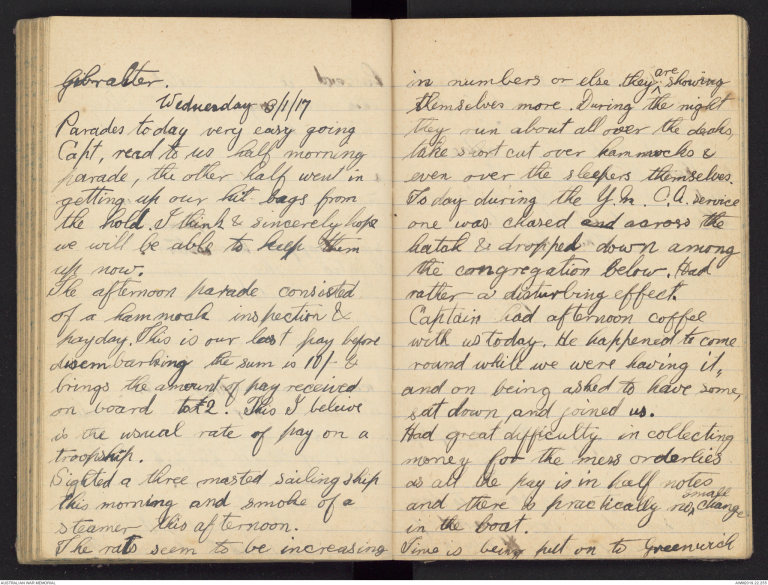 Gibralter.
Wednesday 3/1/17
Parades today very easy going
Capt, read to us half morning
parade, the other half went in
getting up our kit bags from
the hold. I think & sincerely hope
we will be able to keep them
up now.
The afternoon parade consisted
of a hammock inspection &
payday. This is our last pay before
disembarking the sum is 10/- &
brings the amount of pay received
on board to £2. This I believe
is the usual rate of pay on a
troopship.
Sighted a three masted sailing ship
this morning and smoke of a
steamer this afternoon.
The rats seem to be increasing
in numbers or else they are showing
themselves more. During the night
they run about all over the decks,
take short cut over hammocks &
even over the sleepers themselves.
To day during the Y.M.C.A. service
one was chased and across the
hatch & dropped down among
the congregation below. Had
rather a disturbing effect.
Captain had afternoon coffee
with us today. He happened to come
round while we were having it,
and on being asked to have some,
sat down and joined us.
Had great difficulty in collecting
money for the mess orderlies
as all the pay is in half notes
and there is practically no small change
in the boat.
Time is being put on to Greenwich
AUSTRALIAN WAR MEMORIAL